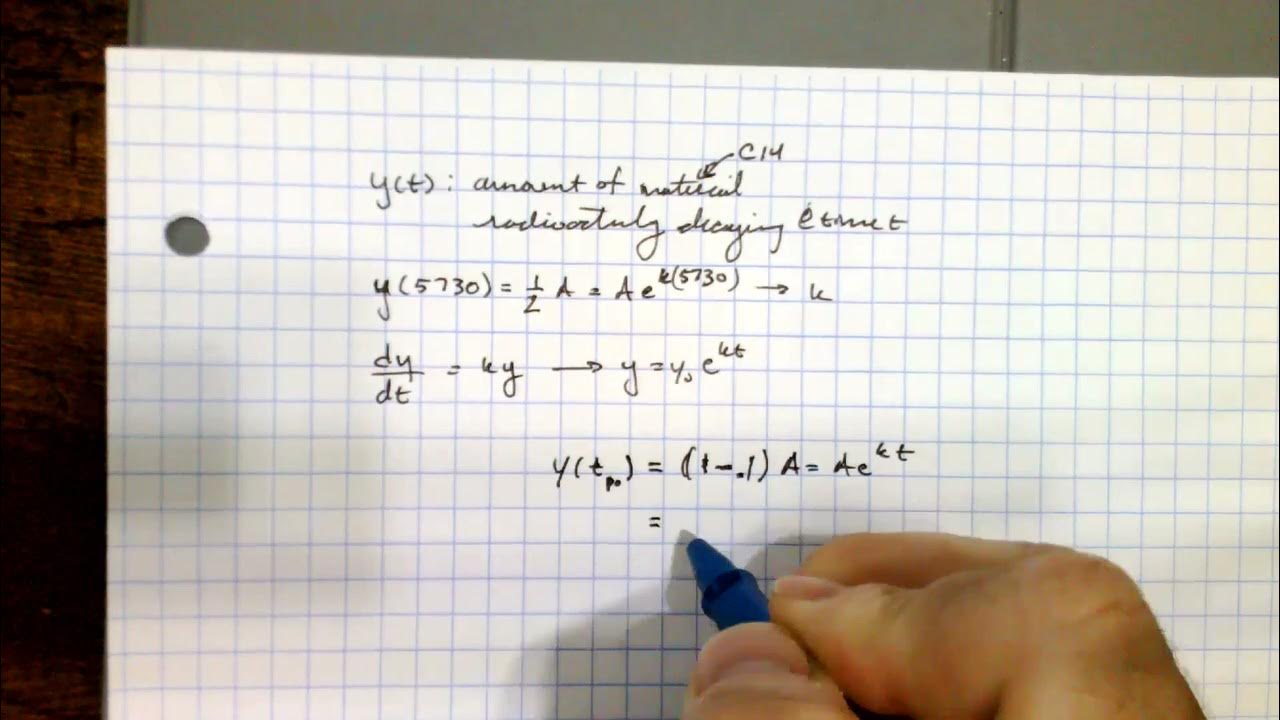 C14
y(t) : amount of material
radioactively decaying @ time t
y(5730) = 1/2 A = A e^{k(5730)} → k
dy/dt = ky → y = y₀ e^{kt}
y(t_{10}) = (1-.1) A = A e^{kt}
=